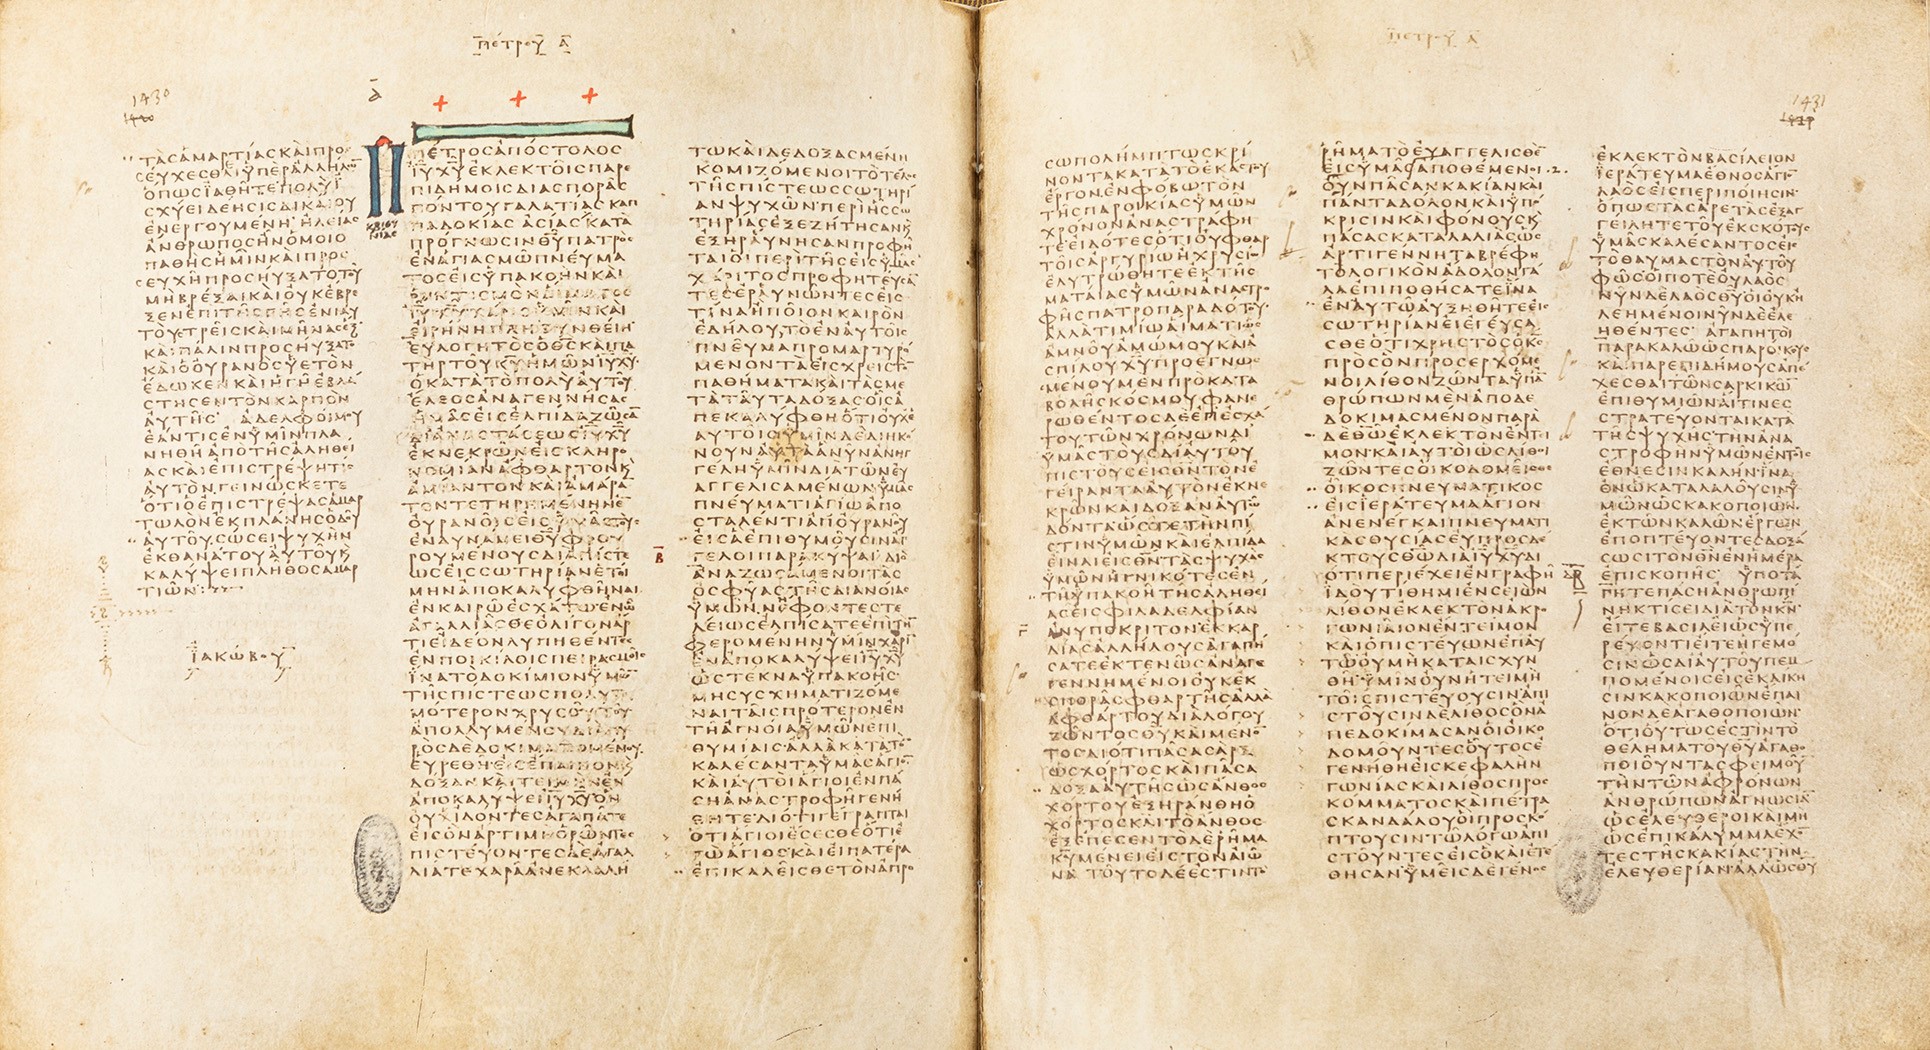 ΠΕΤΡΟΥ Α
1430
ΤΑϹΑΜΑΡΤΙΑϹΚΑΙΠΡΟ
ϹΕΥΧΕϹΘΑΙΥΠΕΡΑΛΛΗΛΩ
ΟΠΩϹΙΑΘΗΤΕΠΟΛΥΙ
ϹΧΥΕΙΔΕΗϹΙϹΔΙΚΑΙΟΥ
ΕΝΕΡΓΟΥΜΕΝΗΗΛΕΙΑϹ
ΑΝΘΡΩΠΟϹΗΝΟΜΟΙΟ
ΠΑΘΗϹΗΜΙΝΚΑΙΠΡΟϹ
ΕΥΧΗΠΡΟϹΗΥΞΑΤΟΤΟΥ
ΜΗΒΡΕΞΑΙΚΑΙΟΥΚΕΒΡΕ
ΞΕΝΕΠΙΤΗϹΓΗϹΕΝΙΑΥ
ΤΟΥϹΤΡΕΙϹΚΑΙΜΗΝΑϹΕΞ
ΚΑΙΠΑΛΙΝΠΡΟϹΗΥΞΑΤΟ
ΚΑΙΟΟΥΡΑΝΟϹΥΕΤΟΝ
ΕΔΩΚΕΝΚΑΙΗΓΗΕΒΛΑ
ϹΤΗϹΕΝΤΟΝΚΑΡΠΟΝ
ΑΥΤΗϹ ΑΔΕΛΦΟΙΜΟΥ
ΕΑΝΤΙϹΕΝΥΜΙΝΠΛΑ
ΝΗΘΗΑΠΟΤΗϹΑΛΗΘΕΙ
ΑϹΚΑΙΕΠΙϹΤΡΕΨΗΤΙϹ
ΑΥΤΟΝΓΕΙΝΩϹΚΕΤΕ
ΟΤΙΟΕΠΙϹΤΡΕΨΑϹΑΜΑΡ
ΤΩΛΟΝΕΚΠΛΑΝΗϹΟΔΟΥ
ΑΥΤΟΥϹΩϹΕΙΨΥΧΗΝ
ΕΚΘΑΝΑΤΟΥΑΥΤΟΥΚ
ΚΑΛΥΨΕΙΠΛΗΘΟϹΑΜΑΡ
ΤΙΩΝ
ΙΑΚΩΒΟΥ
Α
ΠΕΤΡΟϹΑΠΟϹΤΟΛΟϹ
ΙΥΧΥΕΚΛΕΚΤΟΙϹΠΑΡΕ
ΠΙΔΗΜΟΙϹΔΙΑϹΠΟΡΑϹ
ΠΟΝΤΟΥΓΑΛΑΤΙΑϹΚΑΠ
ΠΑΔΟΚΙΑϹΑϹΙΑϹΚΑΤΑ
ΠΡΟΓΝΩϹΙΝΘΥΠΑΤΡΟϹ
ΕΝΑΓΙΑϹΜΩΠΝΕΥΜΑ
ΤΟϹΕΙϹΥΠΑΚΟΗΝΚΑΙ
ΡΑΝΤΙϹΜΟΝΑΙΜΑΤΟϹ
ΙΥΧΥΧΑΡΙϹΥΜΙΝΚΑΙ
ΕΙΡΗΝΗΠΛΗΘΥΝΘΕΙΗ
ΕΥΛΟΓΗΤΟϹΟΘϹΚΑΙΠΑ
ΤΗΡΤΟΥΚΥΗΜΩΝΙΥΧΥ
ΟΚΑΤΑΤΟΠΟΛΥΑΥΤΟΥ
ΕΛΕΟϹΑΝΑΓΕΝΝΗϹΑϹ
ΗΜΑϹΕΙϹΕΛΠΙΔΑΖΩϹΑ
ΔΙΑΝΑϹΤΑϹΕΩϹΙΥΧΥ
ΕΚΝΕΚΡΩΝΕΙϹΚΛΗΡΟ
ΝΟΜΙΑΝΑΦΘΑΡΤΟΝΚ
ΑΜΙΑΝΤΟΝΚΑΙΑΜΑΡΑ
ΤΟΝΤΕΤΗΡΗΜΕΝΗΝΕ
ΟΥΡΑΝΟΙϹΕΙϹΥΜΑϹΤΟΥϹ
ΕΝΔΥΝΑΜΕΙΘΥΦΡΟΥ
ΡΟΥΜΕΝΟΥϹΔΙΑΠΙϹΤΕ
ΩϹΕΙϹϹΩΤΗΡΙΑΝΕΤΟΙ
ΜΗΝΑΠΟΚΑΛΥΦΘΗΝΑΙ
ΕΝΚΑΙΡΩΕϹΧΑΤΩΕΝΩ
ΑΓΑΛΛΙΑϹΘΕΟΛΙΓΟΝΑΡ
ΤΙΕΙΔΕΟΝΛΥΠΗΘΕΝΤΕϹ
ΕΝΠΟΙΚΙΛΟΙϹΠΕΙΡΑϹΜΟΙϹ
ΙΝΑΤΟΔΟΚΙΜΙΟΝΥΜΩ
ΤΗϹΠΙϹΤΕΩϹΠΟΛΥΤΙ
ΜΟΤΕΡΟΝΧΡΥϹΟΥΤΟΥ
ΑΠΟΛΛΥΜΕΝΟΥΔΙΑΠΥ
ΡΟϹΔΕΔΟΚΙΜΑΖΟΜΕΝΟΥ
ΕΥΡΕΘΗΕΙϹΕΠΑΙΝΟΝΚ
ΔΟΞΑΝΚΑΙΤΕΙΜΗΝΕΝ
ΑΠΟΚΑΛΥΨΕΙΙΥΧΥΟΝ
ΟΥΧΙΔΟΝΤΕϹΑΓΑΠΑΤΕ
ΕΙϹΟΝΑΡΤΙΜΗΟΡΩΝΤΕϹ
ΠΙϹΤΕΥΟΝΤΕϹΔΕΑΓΑΛ
ΛΙΑΤΕΧΑΡΑΑΝΕΚΛΑΛΗ
Β
ΤΩΚΑΙΔΕΔΟΞΑϹΜΕΝΗ
ΚΟΜΙΖΟΜΕΝΟΙΤΟΤΕΛΟϹ
ΤΗϹΠΙϹΤΕΩϹϹΩΤΗΡΙ
ΑΝΨΥΧΩΝΠΕΡΙΗϹϹΩ
ΤΗΡΙΑϹΕΞΕΖΗΤΗϹΑΝΚ
ΕΞΗΡΑΥΝΗϹΑΝΠΡΟΦΗ
ΤΑΙΟΙΠΕΡΙΤΗϹΕΙϹΥΜΑϹ
ΧΑΡΙΤΟϹΠΡΟΦΗΤΕΥϹΑ
ΤΕϹΕΡΑΥΝΩΝΤΕϹΕΙϹ
ΤΙΝΑΗΠΟΙΟΝΚΑΙΡΟΝ
ΕΔΗΛΟΥΤΟΕΝΑΥΤΟΙϹ
ΠΝΕΥΜΑΠΡΟΜΑΡΤΥΡΟ
ΜΕΝΟΝΤΑΕΙϹΧΡΕΙϹΤΟ
ΠΑΘΗΜΑΤΑΚΑΙΤΑϹΜΕ
ΤΑΤΑΥΤΑΔΟΞΑϹΟΙϹΑ
ΠΕΚΑΛΥΦΘΗΟΤΙΟΥΧΕ
ΑΥΤΟΙϹΥΜΙΝΔΕΔΙΗΚΟ
ΝΟΥΝΑΥΤΑΑΝΥΝΑΝΗΓ
ΓΕΛΗΥΜΙΝΔΙΑΤΩΝΕΥ
ΑΓΓΕΛΙϹΑΜΕΝΩΝΥΜΑϹ
ΠΝΕΥΜΑΤΙΑΓΙΩΑΠΟ
ϹΤΑΛΕΝΤΙΑΠΟΥΡΑΝΟΥ
ΕΙϹΑΕΠΙΘΥΜΟΥϹΙΝΑΓ
ΓΕΛΟΙΠΑΡΑΚΥΨΑΙΔΙΟ
ΑΝΑΖΩϹΑΜΕΝΟΙΤΑϹ
ΟϹΦΥΑϹΤΗϹΔΙΑΝΟΙΑϹ
ΥΜΩΝΝΗΦΟΝΤΕϹΤΕ
ΛΕΙΩϹΕΛΠΙϹΑΤΕΕΠΙΤΗ
ΦΕΡΟΜΕΝΗΝΥΜΙΝΧΑΡΙ
ΕΝΑΠΟΚΑΛΥΨΕΙΙΥΧΥ
ΩϹΤΕΚΝΑΥΠΑΚΟΗϹ
ΜΗϹΥϹΧΗΜΑΤΙΖΟΜΕ
ΝΑΙΤΑΙϹΠΡΟΤΕΡΟΝΕΝ
ΤΗΑΓΝΟΙΑΥΜΩΝΕΠΙ
ΘΥΜΙΑΙϹΑΛΛΑΚΑΤΑΤΟ
ΚΑΛΕϹΑΝΤΑΥΜΑϹΑΓΙΟ
ΚΑΙΑΥΤΟΙΑΓΙΟΙΕΝΠΑ
ϹΗΑΝΑϹΤΡΟΦΗΓΕΝΗ
ΘΗΤΕΔΙΟΤΙΓΕΓΡΑΠΤΑΙ
ΟΤΙΑΓΙΟΙΕϹΕϹΘΕΟΤΙΕ
ΓΩΑΓΙΟϹΚΑΙΕΙΠΑΤΕΡΑ
ΕΠΙΚΑΛΕΙϹΘΕΤΟΝΑΠΡΟ
ΠΕΤΡΟΥ Α
1431
ϹΩΠΟΛΗΜΠΤΩϹΚΡΙ
ΝΟΝΤΑΚΑΤΑΤΟΕΚΑϹΤΟΥ
ΕΡΓΟΝΕΝΦΟΒΩΤΟΝ
ΤΗϹΠΑΡΟΙΚΙΑϹΥΜΩΝ
ΧΡΟΝΟΝΑΝΑϹΤΡΑΦΗ
ΤΕΕΙΔΟΤΕϹΟΤΙΟΥΦΘΑΡ
ΤΟΙϹΑΡΓΥΡΙΩΗΧΡΥϹΙΩ
ΕΛΥΤΡΩΘΗΤΕΕΚΤΗϹ
ΜΑΤΑΙΑϹΥΜΩΝΑΝΑϹΤΡΟ
ΦΗϹΠΑΤΡΟΠΑΡΑΔΟΤΟΥ
ΑΛΛΑΤΙΜΙΩΑΙΜΑΤΙΩϹ
ΑΜΝΟΥΑΜΩΜΟΥΚΑΙΑ
ϹΠΙΛΟΥΧΥΠΡΟΕΓΝΩϹ
ΜΕΝΟΥΜΕΝΠΡΟΚΑΤΑ
ΒΟΛΗϹΚΟϹΜΟΥΦΑΝΕ
ΡΩΘΕΝΤΟϹΔΕΕΠΕϹΧΑ
ΤΟΥΤΩΝΧΡΟΝΩΝΔΙ
ΥΜΑϹΤΟΥϹΔΙΑΥΤΟΥ
ΠΙϹΤΟΥϹΕΙϹΘΝΤΟΝΕ
ΓΕΙΡΑΝΤΑΑΥΤΟΝΕΚΝΕ
ΚΡΩΝΚΑΙΔΟΞΑΝΑΥΤΩ
ΔΟΝΤΑΩϹΤΕΤΗΝΠΙ
ϹΤΙΝΥΜΩΝΚΑΙΕΛΠΙΔΑ
ΕΙΝΑΙΕΙϹΘΝΤΑϹΨΥΧΑϹ
ΥΜΩΝΗΓΝΙΚΟΤΕϹΕΝ
ΤΗΥΠΑΚΟΗΤΗϹΑΛΗΘΕΙ
ΑϹΕΙϹΦΙΛΑΔΕΛΦΙΑΝ
ΑΝΥΠΟΚΡΙΤΟΝΕΚΚΑΡ
ΔΙΑϹΑΛΛΗΛΟΥϹΑΓΑΠΗ
ϹΑΤΕΕΚΤΕΝΩϹΑΝΑΓΕ
ΓΕΝΝΗΜΕΝΟΙΟΥΚΕΚ
ϹΠΟΡΑϹΦΘΑΡΤΗϹΑΛΛΑ
ΑΦΘΑΡΤΟΥΔΙΑΛΟΓΟΥ
ΖΩΝΤΟϹΘΥΚΑΙΜΕΝΟ
ΤΟϹΔΙΟΤΙΠΑϹΑϹΑΡΞ
ΩϹΧΟΡΤΟϹΚΑΙΠΑϹΑ
ΔΟΞΑΑΥΤΗϹΩϹΑΝΘΟϹ
ΧΟΡΤΟΥΕΞΗΡΑΝΘΗΟ
ΧΟΡΤΟϹΚΑΙΤΟΑΝΘΟϹ
ΕΞΕΠΕϹΕΝΤΟΔΕΡΗΜΑ
ΚΥΜΕΝΕΙΕΙϹΤΟΝΑΙΩ
ΝΑ ΤΟΥΤΟΔΕΕϹΤΙΝΤΟ
ΡΗΜΑΤΟΕΥΑΓΓΕΛΙϹΘΕ
ΕΙϹΥΜΑϹΑΠΟΘΕΜΕΝΟΙ
ΟΥΝΠΑϹΑΝΚΑΚΙΑΝΚΑΙ
ΠΑΝΤΑΔΟΛΟΝΚΑΙΥΠΟ
ΚΡΙϹΙΝΚΑΙΦΟΝΟΥϹΚ
ΠΑϹΑϹΚΑΤΑΛΑΛΙΑϹΩϹ
ΑΡΤΙΓΕΝΝΗΤΑΒΡΕΦΗ
ΤΟΛΟΓΙΚΟΝΑΔΟΛΟΝΓΑ
ΛΑΕΠΙΠΟΘΗϹΑΤΕΙΝΑ
ΕΝΑΥΤΩΑΥΞΗΘΗΤΕΕΙϹ
ϹΩΤΗΡΙΑΝΕΙΕΓΕΥϹΑ
ϹΘΕΟΤΙΧΡΗϹΤΟϹΟΚϹ
ΠΡΟϹΟΝΠΡΟϹΕΡΧΟΜΕ
ΝΟΙΛΙΘΟΝΖΩΝΤΑΥΠΑ
ΘΡΩΠΩΝΜΕΝΑΠΟΔΕ
ΔΟΚΙΜΑϹΜΕΝΟΝΠΑΡΑ
ΔΕΘΩΕΚΛΕΚΤΟΝΕΝΤΙ
ΜΟΝΚΑΙΑΥΤΟΙΩϹΛΙΘΟΙ
ΖΩΝΤΕϹΟΙΚΟΔΟΜΕΙϹΘΕ
ΟΙΚΟϹΠΝΕΥΜΑΤΙΚΟϹ
ΕΙϹΙΕΡΑΤΕΥΜΑΑΓΙΟΝ
ΑΝΕΝΕΓΚΑΙΠΝΕΥΜΑΤΙ
ΚΑϹΘΥϹΙΑϹΕΥΠΡΟϹΔΕ
ΚΤΟΥϹΘΩΔΙΑΙΥΧΥΔΙ
ΟΤΙΠΕΡΙΕΧΕΙΕΝΓΡΑΦΗ
ΙΔΟΥΤΙΘΗΜΙΕΝϹΕΙΩΝ
ΛΙΘΟΝΕΚΛΕΚΤΟΝΑΚΡΟ
ΓΩΝΙΑΙΟΝΕΝΤΕΙΜΟΝ
ΚΑΙΟΠΙϹΤΕΥΩΝΕΠΑΥ
ΤΩΟΥΜΗΚΑΤΑΙϹΧΥΝ
ΘΗΥΜΙΝΟΥΝΗΤΕΙΜΗ
ΤΟΙϹΠΙϹΤΕΥΟΥϹΙΝΑΠΙ
ϹΤΟΥϹΙΝΔΕΛΙΘΟϹΟΝΑ
ΠΕΔΟΚΙΜΑϹΑΝΟΙΟΙΚΟ
ΔΟΜΟΥΝΤΕϹΟΥΤΟϹΕ
ΓΕΝΗΘΗΕΙϹΚΕΦΑΛΗΝ
ΓΩΝΙΑϹΚΑΙΛΙΘΟϹΠΡΟϹ
ΚΟΜΜΑΤΟϹΚΑΙΠΕΤΡΑ
ϹΚΑΝΔΑΛΟΥΟΙΠΡΟϹΚΟ
ΠΤΟΥϹΙΝΤΩΛΟΓΩΑΠΙ
ϹΤΟΥΝΤΕϹΕΙϹΟΚΑΙΕΤΕ
ΘΗϹΑΝΥΜΕΙϹΔΕΓΕΝΟϹ
ΕΚΛΕΚΤΟΝΒΑϹΙΛΕΙΟΝ
ΙΕΡΑΤΕΥΜΑΕΘΝΟϹΑΓΙΟ
ΛΑΟϹΕΙϹΠΕΡΙΠΟΙΗϹΙΝ
ΟΠΩϹΤΑϹΑΡΕΤΑϹΕΞΑΓ
ΓΕΙΛΗΤΕΤΟΥΕΚϹΚΟΤΟΥϹ
ΥΜΑϹΚΑΛΕϹΑΝΤΟϹΕΙϹ
ΤΟΘΑΥΜΑϹΤΟΝΑΥΤΟΥ
ΦΩϹΟΙΠΟΤΕΟΥΛΑΟϹ
ΝΥΝΔΕΛΑΟϹΘΥΟΙΟΥΚΗ
ΛΕΗΜΕΝΟΙΝΥΝΔΕΕΛΕ
ΗΘΕΝΤΕϹ ΑΓΑΠΗΤΟΙ
ΠΑΡΑΚΑΛΩΩϹΠΑΡΟΙΚΟΥϹ
ΚΑΙΠΑΡΕΠΙΔΗΜΟΥϹΑΠΕ
ΧΕϹΘΑΙΤΩΝϹΑΡΚΙΚΩ
ΕΠΙΘΥΜΙΩΝΑΙΤΙΝΕϹ
ϹΤΡΑΤΕΥΟΝΤΑΙΚΑΤΑ
ΤΗϹΨΥΧΗϹΤΗΝΑΝΑ
ϹΤΡΟΦΗΝΥΜΩΝΕΝΤΟΙϹ
ΕΘΝΕϹΙΝΚΑΛΗΝΙΝΑ
ΕΝΩΚΑΤΑΛΑΛΟΥϹΙΝΥ
ΜΩΝΩϹΚΑΚΟΠΟΙΩΝ
ΕΚΤΩΝΚΑΛΩΝΕΡΓΩΝ
ΕΠΟΠΤΕΥΟΝΤΕϹΔΟΞΑ
ϹΩϹΙΤΟΝΘΝΕΝΗΜΕΡΑ
ΕΠΙϹΚΟΠΗϹ ΥΠΟΤΑ
ΓΗΤΕΠΑϹΗΑΝΘΡΩΠΙ
ΝΗΚΤΙϹΕΙΔΙΑΤΟΝΚΝ
ΕΙΤΕΒΑϹΙΛΕΙΩϹΥΠΕ
ΡΕΧΟΝΤΙΕΙΤΕΗΓΕΜΟ
ϹΙΝΩϹΔΙΑΥΤΟΥΠΕΜ
ΠΟΜΕΝΟΙϹΕΙϹΕΚΔΙΚΗ
ϹΙΝΚΑΚΟΠΟΙΩΝΕΠΑΙ
ΝΟΝΔΕΑΓΑΘΟΠΟΙΩΝ
ΟΤΙΟΥΤΩϹΕϹΤΙΝΤΟ
ΘΕΛΗΜΑΤΟΥΘΥΑΓΑΘΟ
ΠΟΙΟΥΝΤΑϹΦΕΙΜΟΥ
ΤΗΝΤΩΝΑΦΡΟΝΩΝ
ΑΝΘΡΩΠΩΝΑΓΝΩϹΙΑ
ΩϹΕΛΕΥΘΕΡΟΙΚΑΙΜΗ
ΩϹΕΠΙΚΑΛΥΜΜΑΕΧΟ
ΤΕϹΤΗϹΚΑΚΙΑϹΤΗΝ
ΕΛΕΥΘΕΡΙΑΝΑΛΛΩϹΘΥ